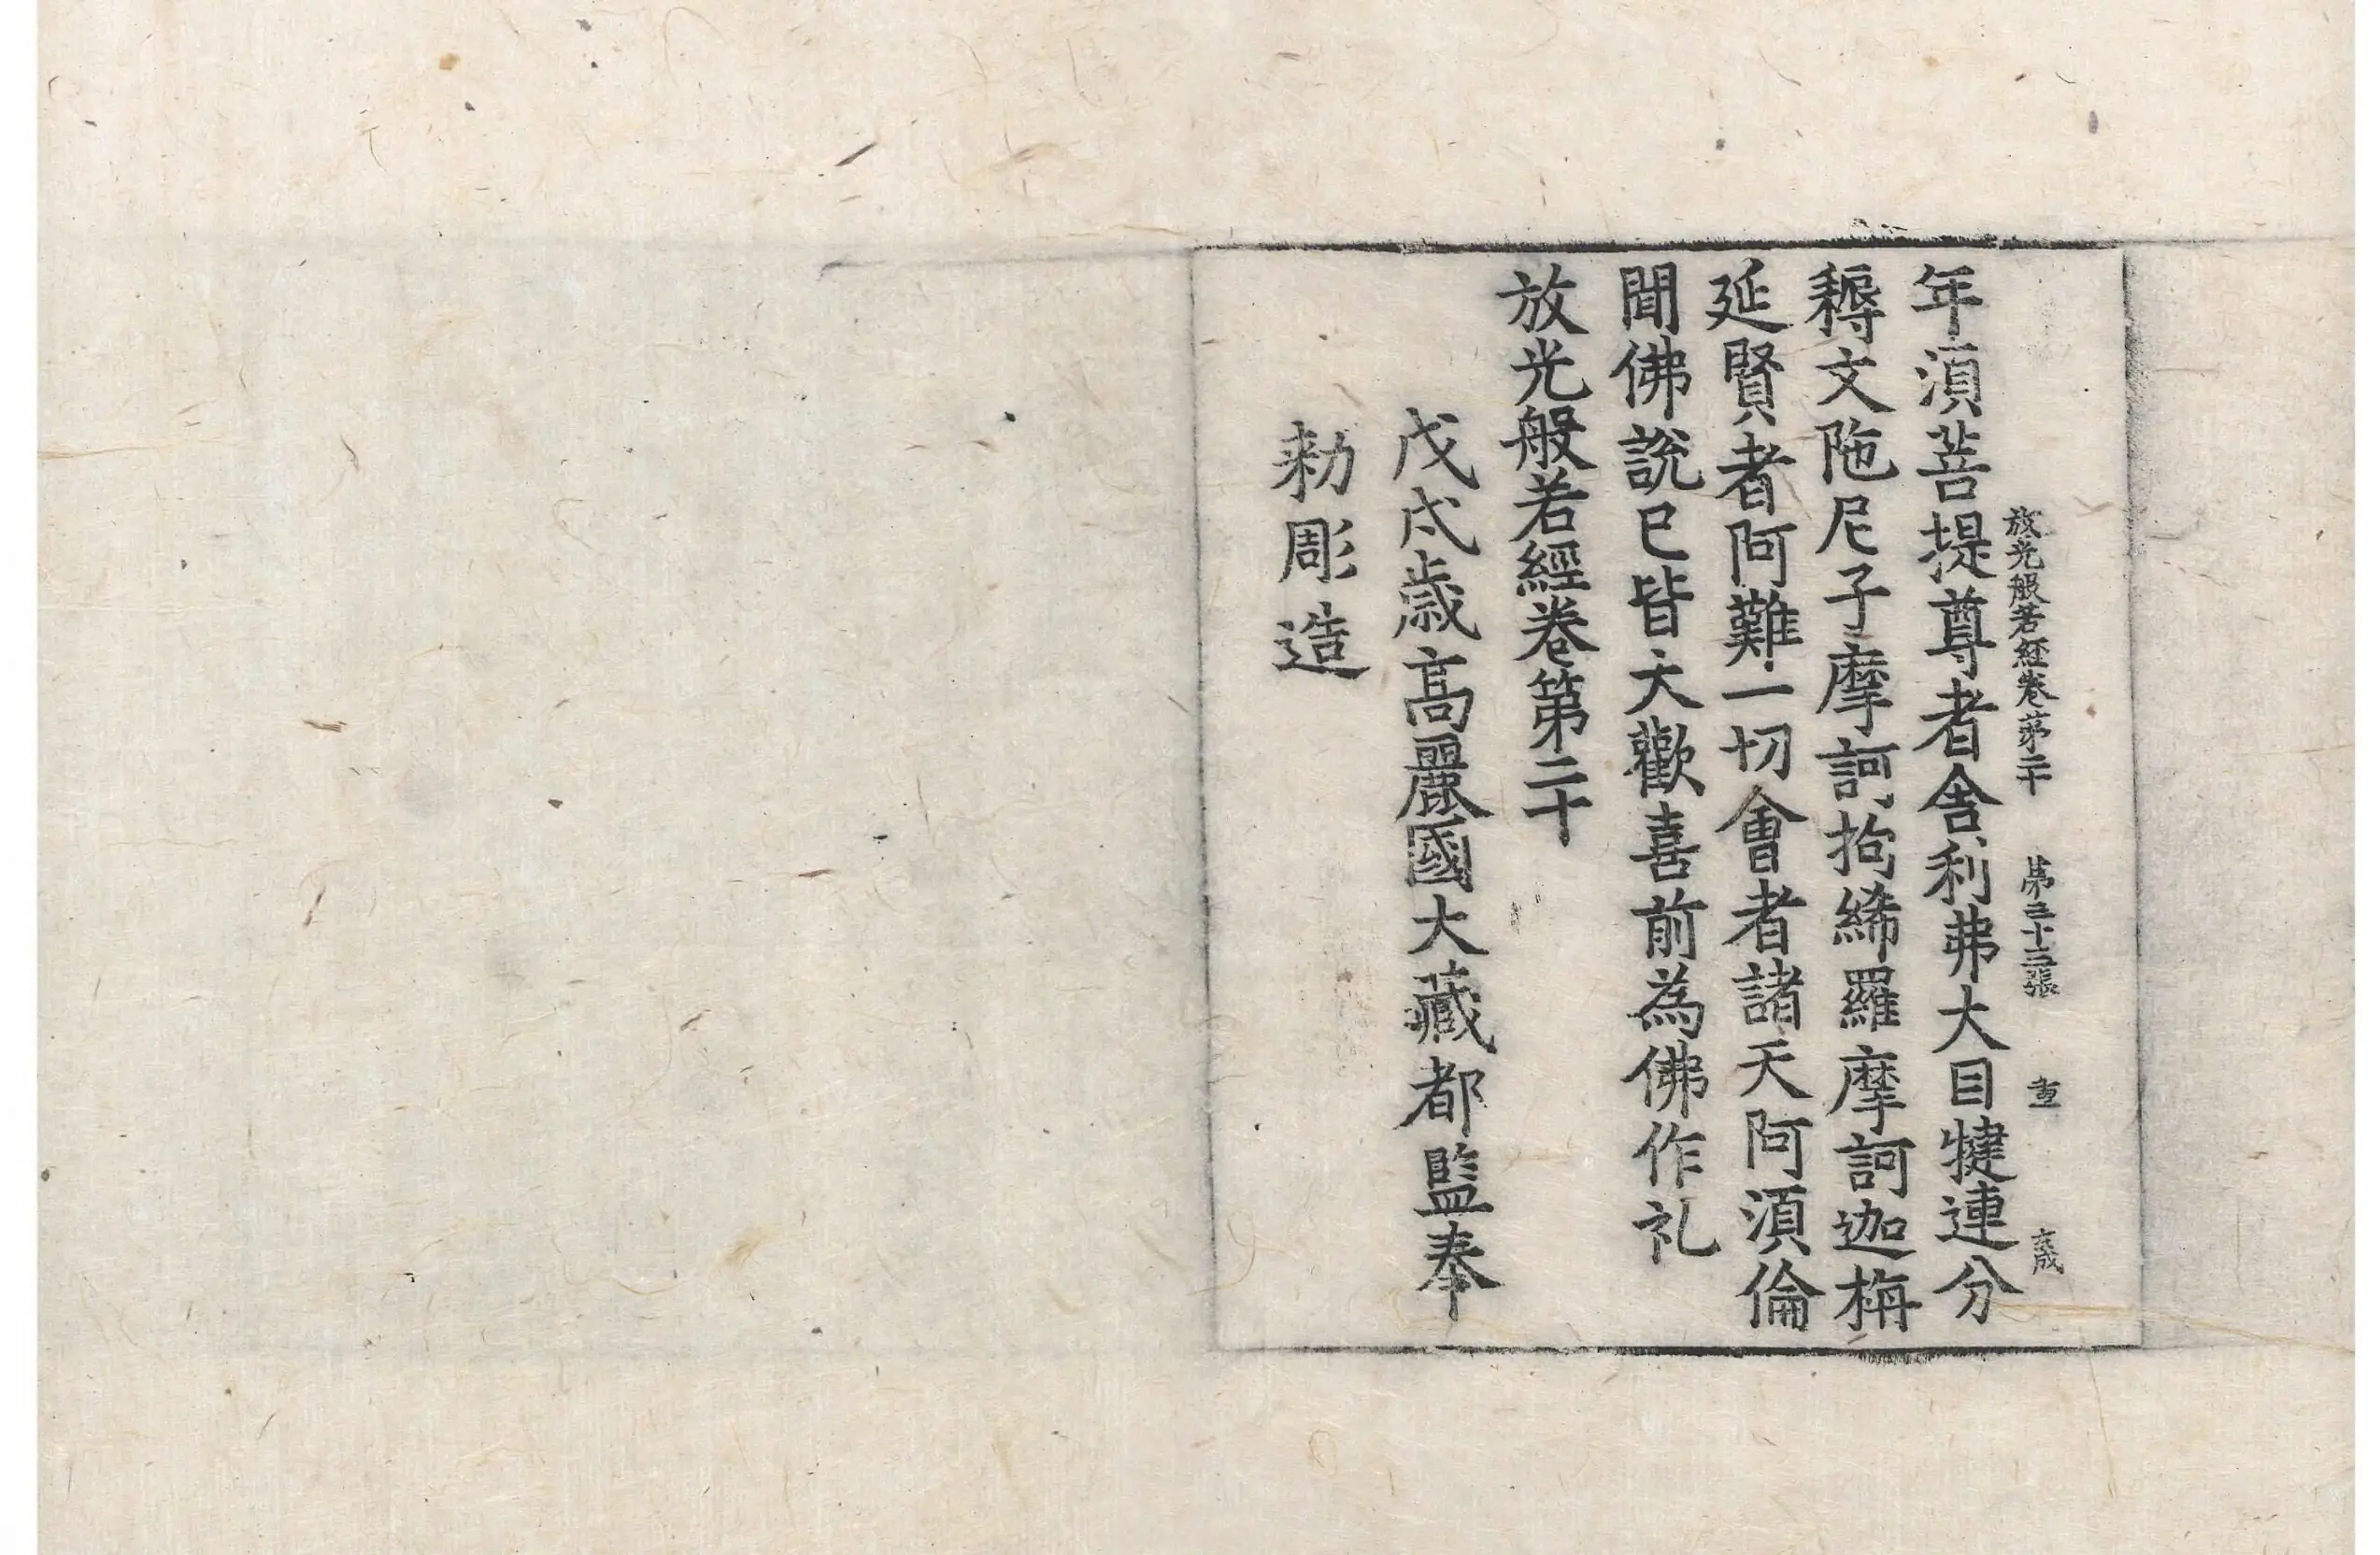 放光般若経卷第二十 第三十三張 重 六成
年湏菩提尊者舎利弗大目犍連分
耨文陁尼子摩訶拘絺羅摩訶迦栴
延賢者阿難一切會者諸天阿湏倫
聞佛說已皆大歡喜前為佛作礼
放光般若經卷第二十
戊戌歲高麗國大藏都監奉
勑彫造